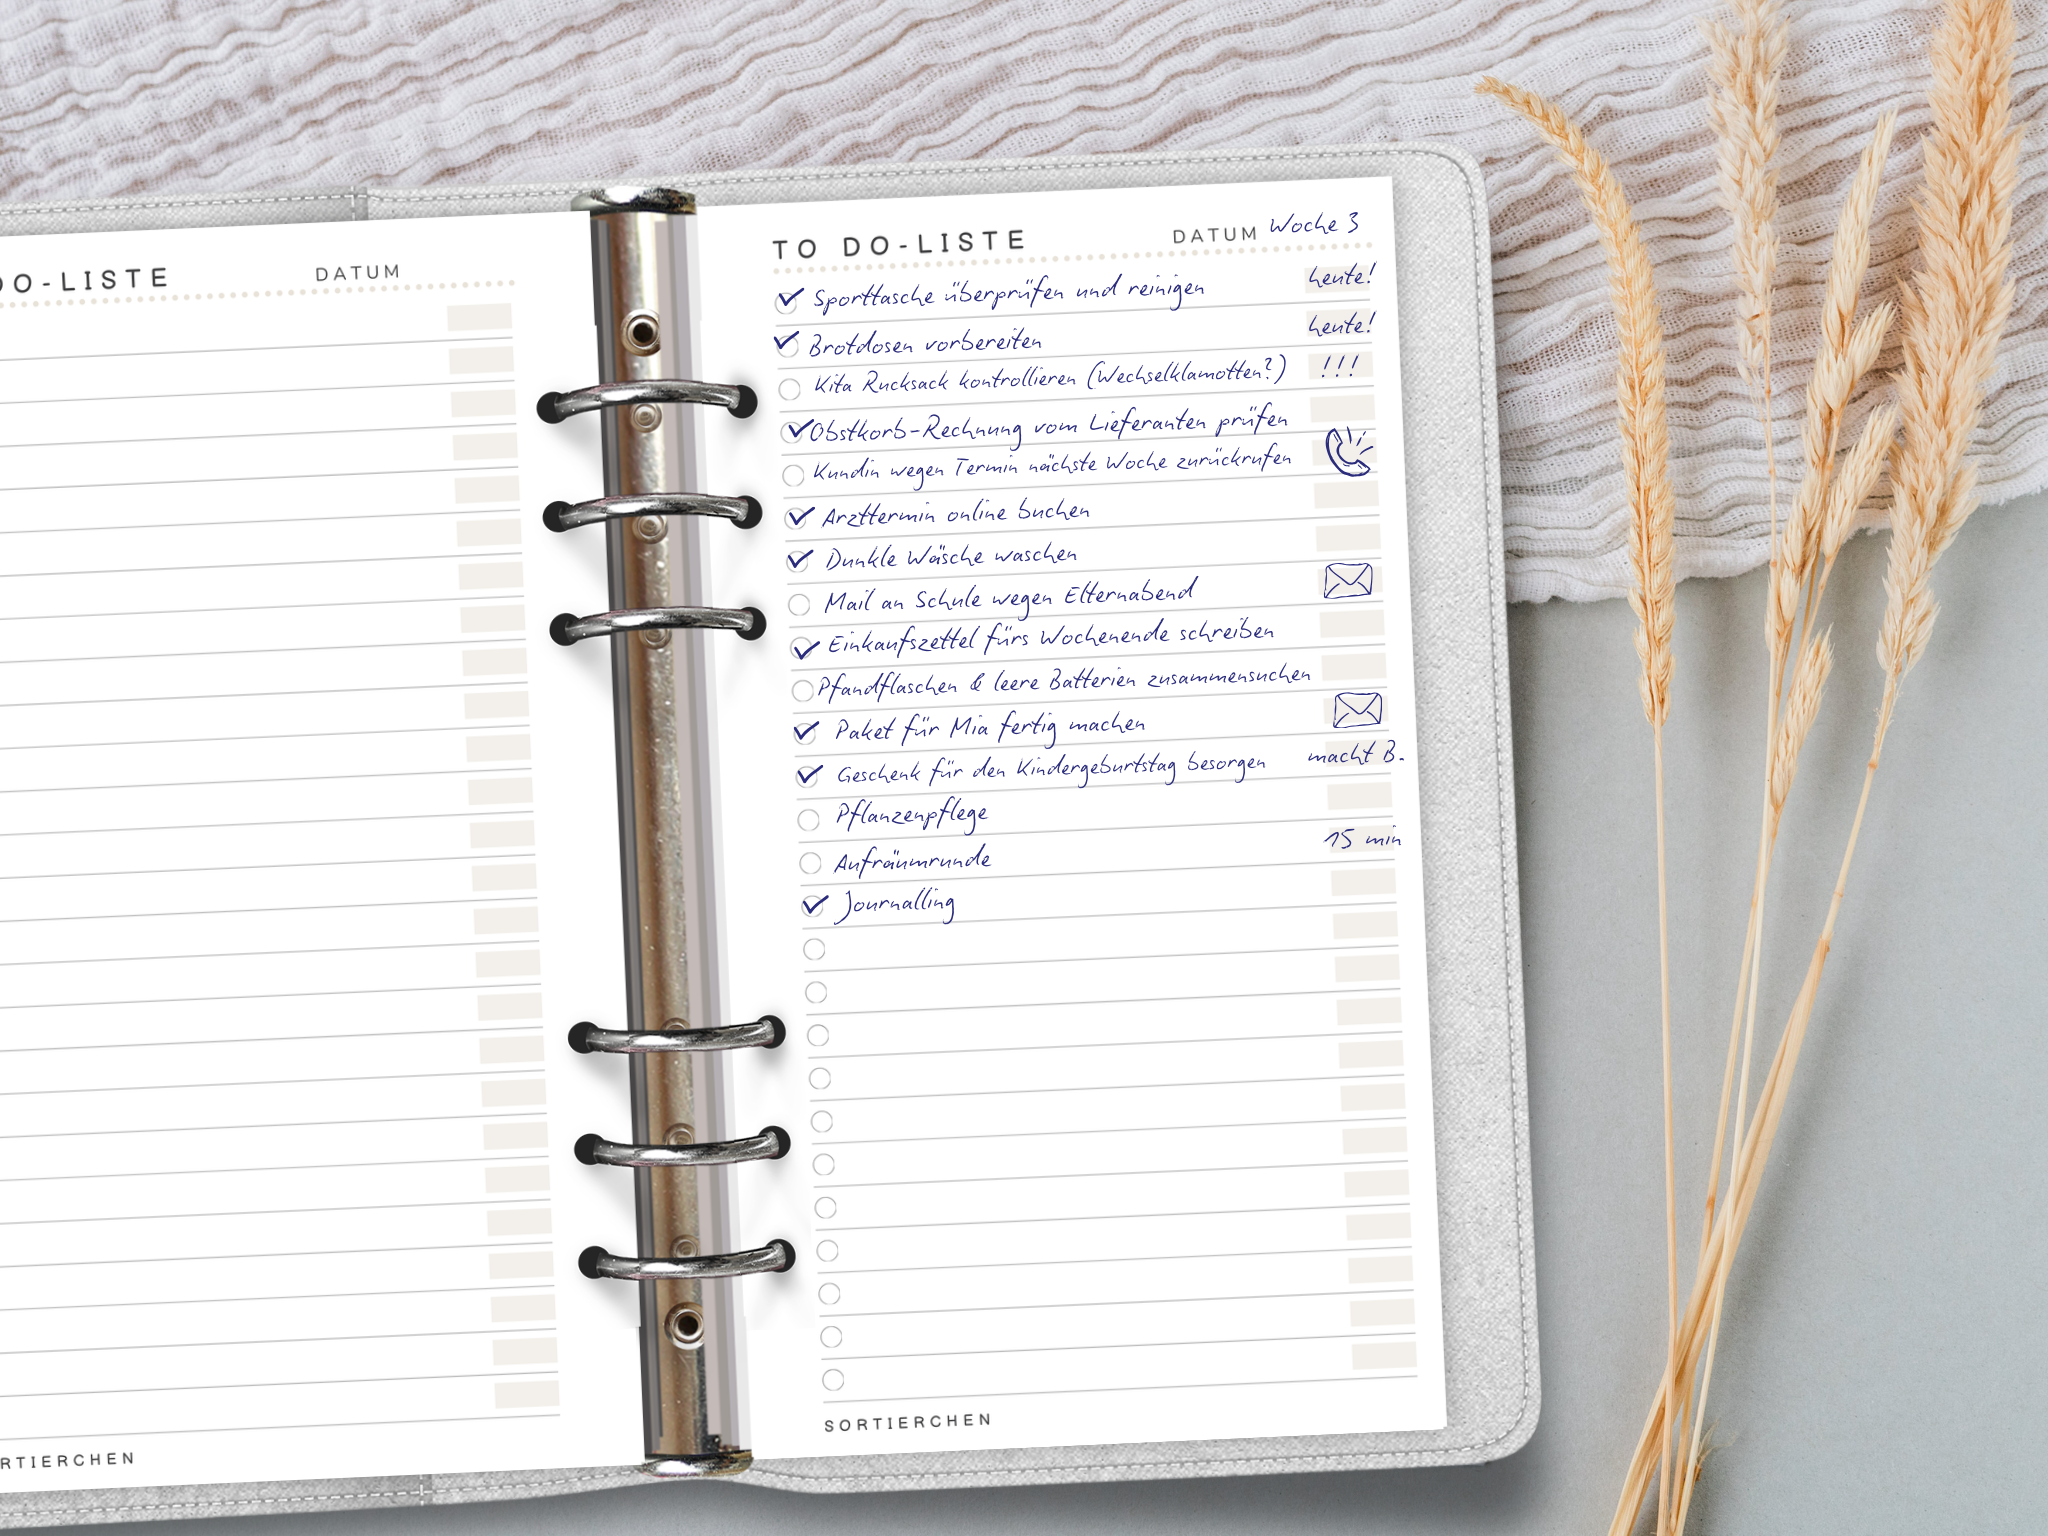 DO-LISTE DATUM
RTIERCHEN
TO DO-LISTE DATUM Woche 3
Sporttasche überprüfen und reinigen heute!
Brotdosen vorbereiten heute!
Kita Rucksack kontrollieren (Wechselklamotten?) !!!
Obstkorb-Rechnung vom Lieferanten prüfen
Kundin wegen Termin nächste Woche zurückrufen
Arzttermin online buchen
Dunkle Wäsche waschen
Mail an Schule wegen Elternabend
Einkaufszettel fürs Wochenende schreiben
Pfandflaschen & leere Batterien zusammensuchen
Paket für Mia fertig machen
Geschenk für den Kindergeburtstag besorgen macht B.
Pflanzenpflege
Aufräumrunde 15 min
Journalling
SORTIERCHEN